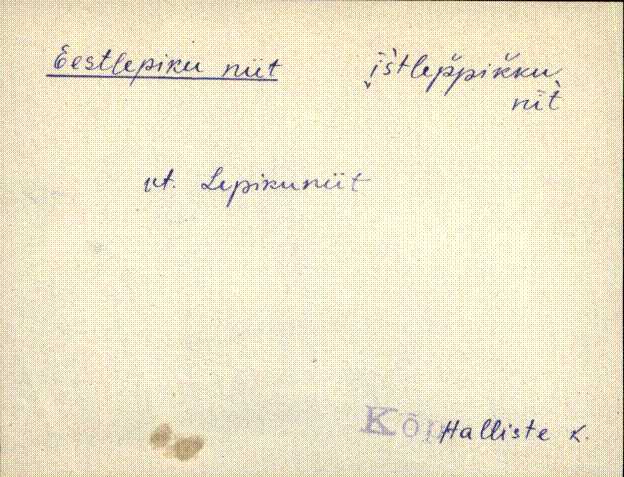 Eestlepiku niit   i̮ìstlep̆pik̆ku
nīt̀
vt. Lepikuniit
Kõn Halliste k.